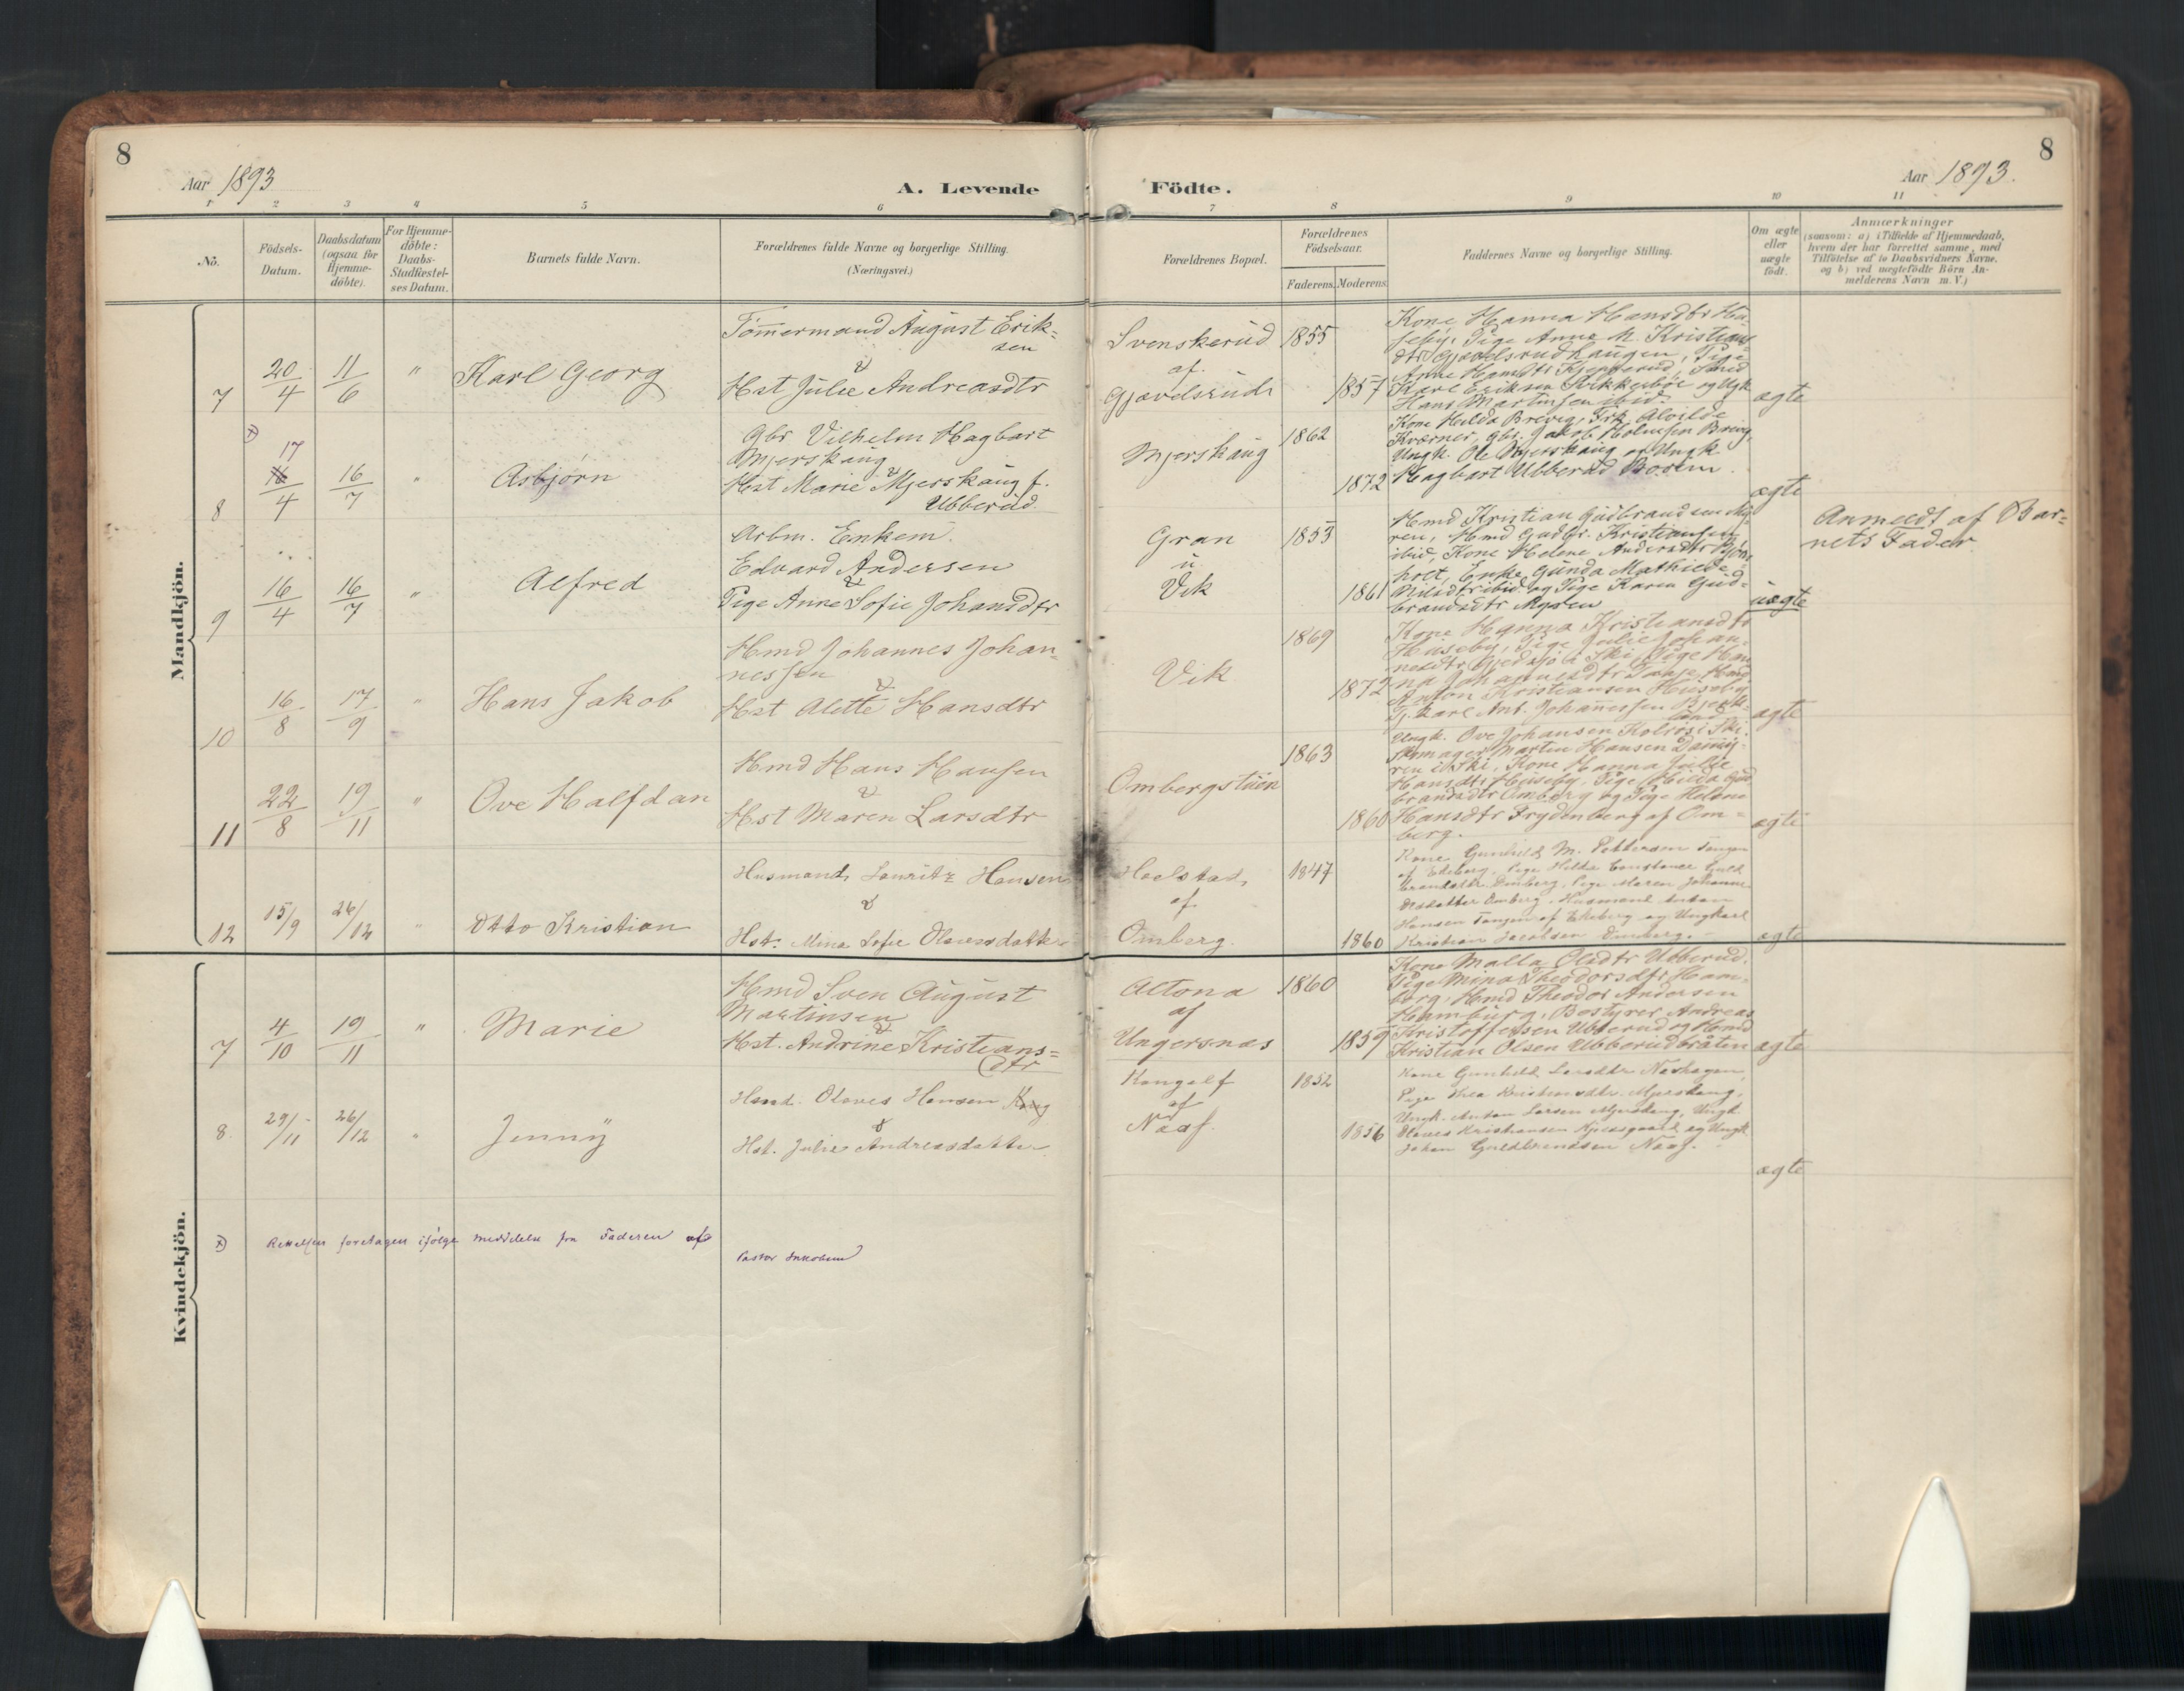 8
Aar 1893
A. Levende
Födte.
Aar 1893.
8
1 2 3 4 5 6 7 8 9 10 11
No.
Födsels-
Datum.
Daabsdatum
(ogsaa for
Hjemme-
döbte).
For Hjemme-
döbte:
Daabs-
Stadfæstel-
ses Datum.
Barnets fulde Navn.
Forældrenes fulde Navne og borgerlige Stilling.
(Næringsvei.)
Forældrenes Bopæl.
Forældrenes
Födselsaar.
Faderens. Moderens.
Faddernes Navne og borgerlige Stilling.
Om ægte
eller
uægte
födt.
Anmærkninger
(saasom: a) i Tilfælde af Hjemmedaab,
hvem der har forrettet samme, med
Tilföielse af to Daabsvidners Navne,
og b) ved uægtefödte Börn An-
melderens Navn m. V.)
Mandkjön.
7
20/4
11/6
"
Karl Georg
Tömmermand August Erik=
sen
&
Hst Julie Andreasdtr
Svenskerud
af
Gjævelsrud
1855
1857
Kone Hanna Hansdtr Hu-
seby, Pige Anne M. Kristians
dtr Gjævelsrudhaugen, Pige
Anne Hansdtr Kjepperud, Smed
Karl Eriksen Svikkebøl og Ugk
Hans Martinsen ibid.
ægte
8
x)
17
16/4
16/7
"
Asbjørn
Gbr Vilhelm Hagbart
Mjerskaug
&
Hst Marie Mjerskaug f.
Ubberud
Mjerskaug
1862
1872
Kone Hilda Brevig, Frk Alvilde
Kværner, gbr. Jakob Holmsen Brevig,
Ungk. Ole Mjerskaug og Ungk
Hagbart Ubberud Bosem.
ægte
9
16/4
16/7
"
Alfred
Arbm. Enkem.
Edvard Andersen
&
Pige Anne Sofie Johansdtr
Gran
u
Vik
1853
1861
Hmd Kristian Gudbrandsen My-
ren, Hmd Gudbr. Kristiansen
ibid, Kone Helene Andersdtr Bjøn-
holt, Enke Gunda Mathilde
Nilsdtr ibid. og Pige Karen Gud=
brandsdtr Myren
uægte
Anmeldt af Bar=
nets Fader
10
16/8
17/9
"
Hans Jakob
Hmd Johannes Johan=
nessen
&
Hst Alette Hansdtr
Vik
1869
1872
Kone Hanna Kristiansdtr
Huseby, Pige Julie Johan-
nesdtr Gjedsjø i Ski, Pige Han
na Johannesdtr Hmd
Anton Kristiansen Huseby
Tj. Karl Ant. Johannessen Bjerke
land
ægte
11
22/8
19/11
"
Ove Halfdan
Hmd Hans Hansen
&
Hst Maren Larsdtr
Ombergstuen
1863
1860
Ungk. Ove Johansen Kolrøs i Ski.
Skomager Martin Hansen Dammy-
ren i Ski, Kone Hanna Julie
Hansdtr Huseby, Pige Hilda Gud
brandsdtr Omberg og Pige Helene
Hansdtr Frydenberg af Om=
berg.
ægte
12
15/9
26/12
"
Otto Kristian
Husmand Lauritz Hansen
&
Hst. Mina Sofie Olavesdatter
Haslestad
af
Omberg.
1847
1860
Kone Gunhild M. Pettersen Tangen
af Ekeberg, Pige Hilda Constance Guld
brandsdtr Omberg, Pige Maren Johanne
Olsdatter Omberg, Husmand Anton
Hansen Tangen af Ekeberg og Ungkarl
Kristian Jacobsen Omberg.
ægte
Kvindekjön.
7
4/10
19/11
"
Marie
Hmd Sven August
Martinsen
&
Hst. Andrine Kristians=
dtr
Altona
af
Ungersnæs
1860
1859
Kone Malla Olsdtr Ubberud,
Pige Mina Theodorsdtr Ham-
borg, Hmd Theodor Andersen
Hamburg, Bestyrer Andreas
Kristoffersen Ubberud og Hmd
Kristian Olsen Ubberudbråten
ægte
8
29/11
26/12
"
Jenny
Hmd. Olaves Hansen
&
Hst. Julie Andreasdatter
Kongelf
af
Naaf.
1852
1856
Kone Gunhild Larsdtr Næshagen,
Pige Thea Kristiansdtr Mjerskaug,
Ungk. Anton Larsen Mjerskaug, Ungk
Olaves Kristiansen og Ungk
Johan Guldbrandsen Naaf.
ægte
x) Rettelsen foretagen ifølge meddelelse fra Faderen af
Pastor Jakobsen